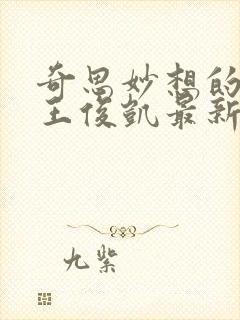 奇思妙想的
王俊凯最新
九紫